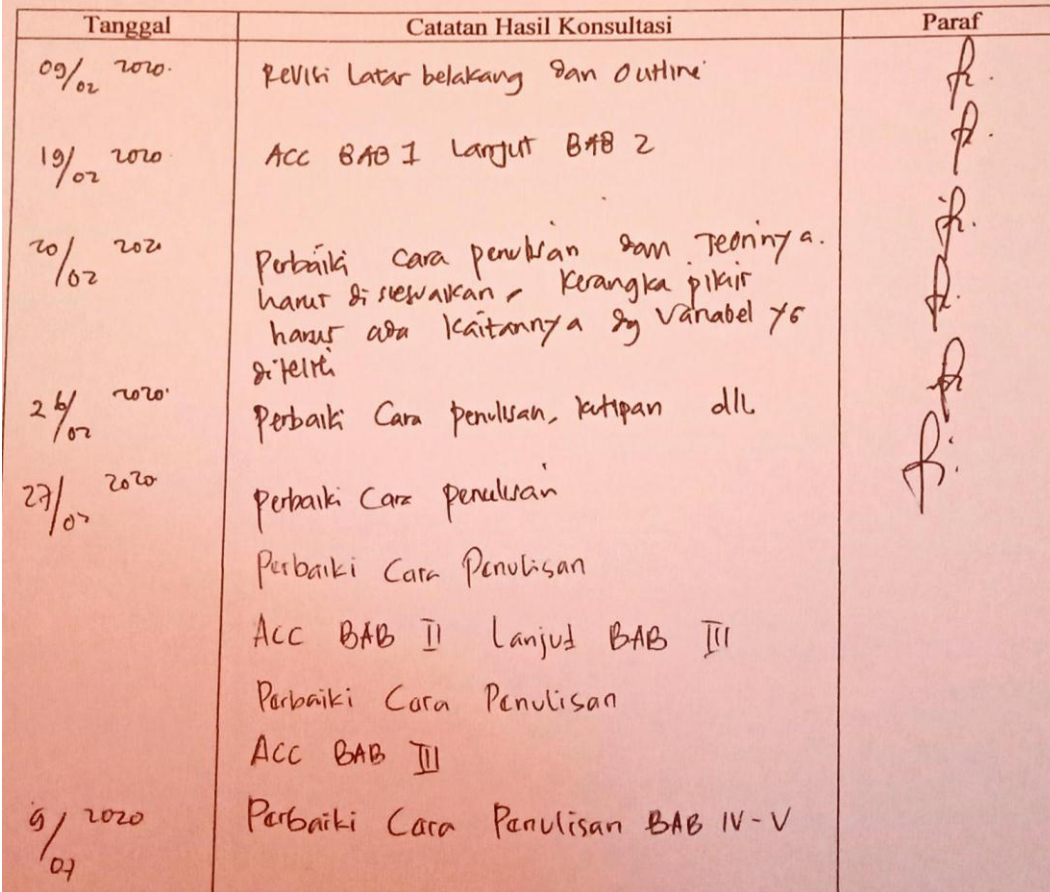 Tanggal Catatan Hasil Konsultasi Paraf
09/02 2020. Revisi Latar belakang dan Outline
19/02 2020. ACC BAB 1 Lanjut BAB 2
20/02 2020 Perbaiki cara penulisan dan Teorinya.
harus disesuaikan, kerangka pikir
harus ada kaitannya dg Variabel yg
diteliti
26/02 2020. Perbaiki Cara penulisan, kutipan dll
27/02 2020 perbaiki Cara penulisan
Perbaiki Cara Penulisan
ACC BAB II Lanjut BAB III
Perbaiki Cara Penulisan
ACC BAB III
9/07 2020 Perbaiki Cara Penulisan BAB IV-V